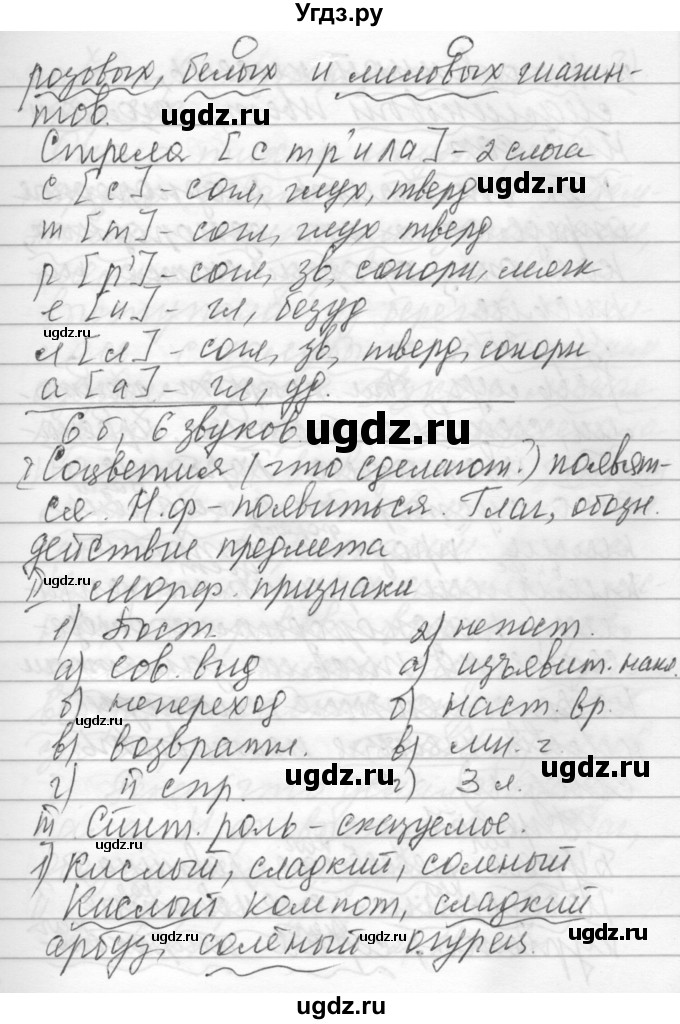 Угдз.ру
розовых, белых и лиловых гиацин-
тов.
ugdz.ru
Стрела [с тр'ила] - 2 слога
с [с] - согл, глух, тверд
ugdz.ru
т [т] - согл, глух тверд
р [р'] - согл, зв, сонорн, мягк
е [и] - гл, безуд
ugdz.ru
л [л] - согл, зв, тверд, сонорн
а [а] - гл, уд.
6 б, 6 звуков
ugdz.ru
I Соцветия (что сделают?) появят-
ся. Н.ф - появиться. Глаг, обозн.
действие предмета
ugdz.ru
II Морф. признаки
1) Пост. 2) непост.
а) сов. вид а) изъявит. накл.
б) непереход б) наст. вр.
ugdz.ru
в) возвратн. в) мн. ч.
г) II спр. г) 3 л.
ugdz.ru
ugdz.ru
III Синт. роль - сказуемое.
1) Кислый, сладкий, соленый
Кислый компот, сладкий
арбуз, солёный огурец.
ugdz.ru
ugdz.ru
ugdz.ru
ugdz.ru